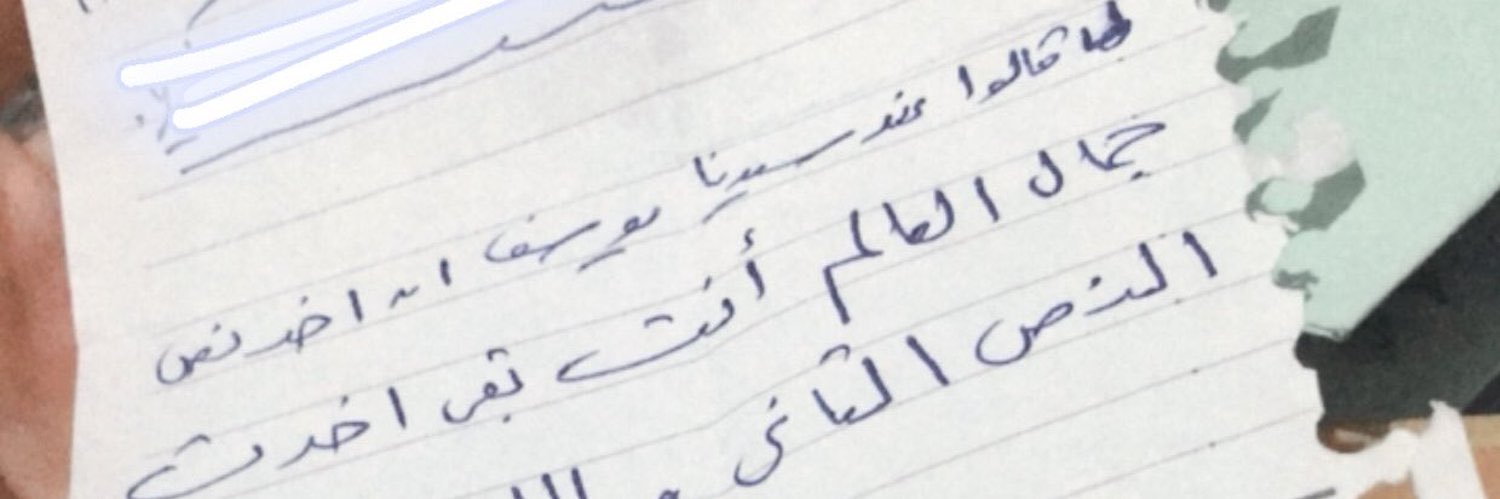 لما قالوا عند سيدنا يوسف انه اخد نص
جمال العالم أنت بقى اخدت
النص التاني